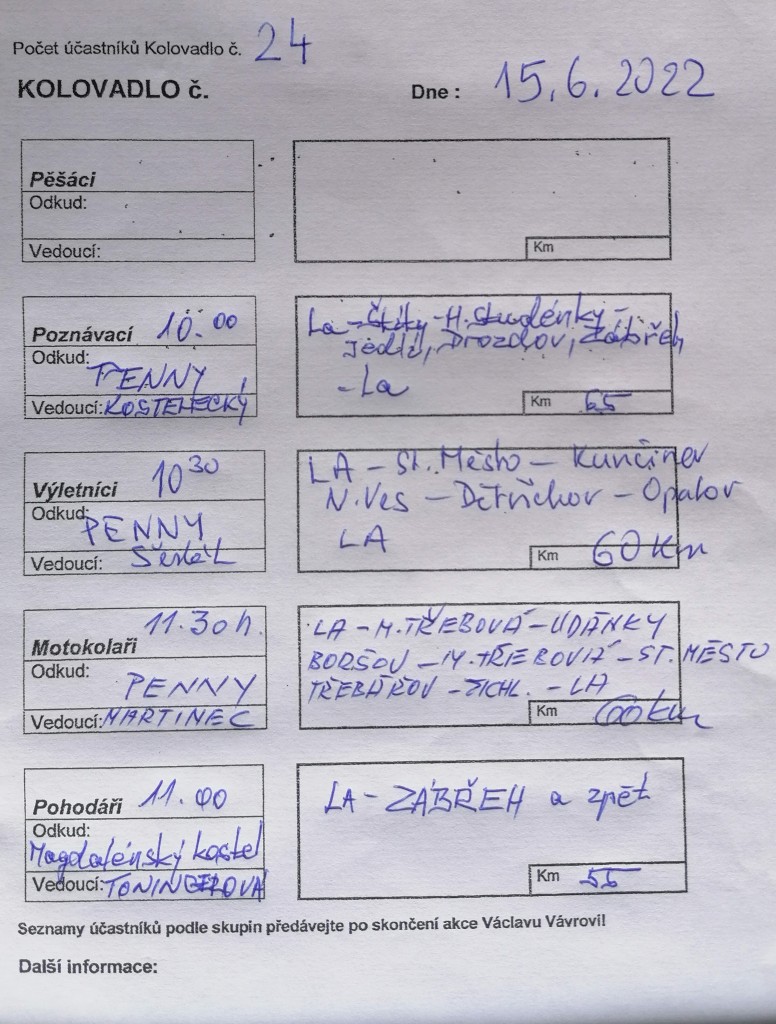 Počet účastníků Kolovadlo č. 24
KOLOVADLO č. Dne : 15.6.2022
Pěšáci
Odkud:
Vedoucí:
Km
Poznávací 10.00
Odkud:
PENNY
Vedoucí: KOSTELECKÝ
La - Štíty - H. Studénky -
Jedlí, Drozdov, Zábřeh
- La
Km 65
Výletníci 10 30
Odkud:
PENNY
Vedoucí:
LA - St. Město - Kunčina
N. Ves - Dětřichov - Opatov
LA
Km 60 km
Motokolaři 11.30 h.
Odkud:
PENNY
Vedoucí: MARTINEC
LA - M. TŘEBOVÁ - UDÁNKY
BORŠOV - M. TŘEBOVÁ - ST. MĚSTO
TŘEBAŘOV - - LA
Km 60 km
Pohodáři 11.00
Odkud:
Magdalénský kostel
Vedoucí:
LA - ZÁBŘEH a zpět
Km 55
Seznamy účastníků podle skupin předávejte po skončení akce Václavu Vávrovi!
Další informace: